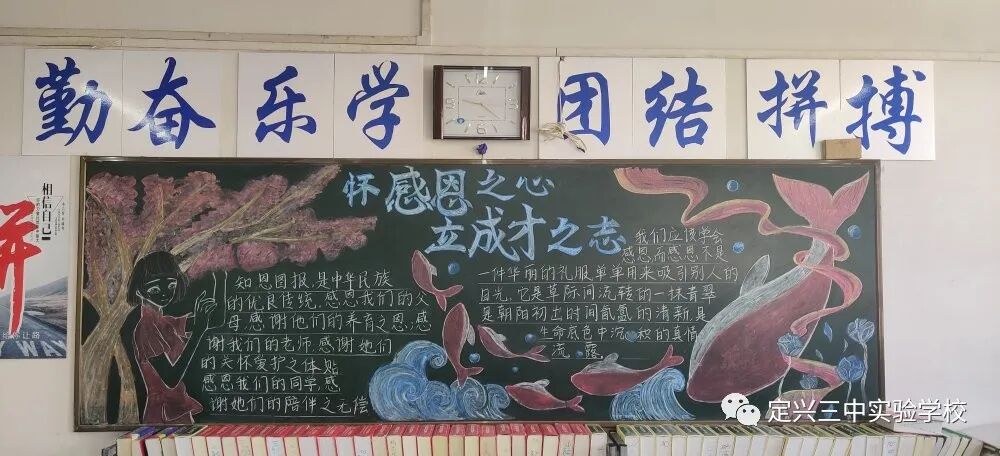 勤奋 乐学 团结 拼搏
相信自己
拼
给你让路
WAY
怀感恩之心
立成才之志
知恩图报,是中华民族
的优良传统,感恩我们的父
母,感谢他们的养育之恩,感
谢我们的老师,感谢她们
的关怀爱护之体贴
感恩我们的同学,感
谢她们的陪伴之无偿
我们应该学会
感恩,而感恩不是
一件华丽的礼服单单用来吸引别人的
目光,它是草际间流转的一抹青翠
是朝阳初土时间氤氲的清新,是
生命底色中沉积的真情
流露
定兴三中实验学校